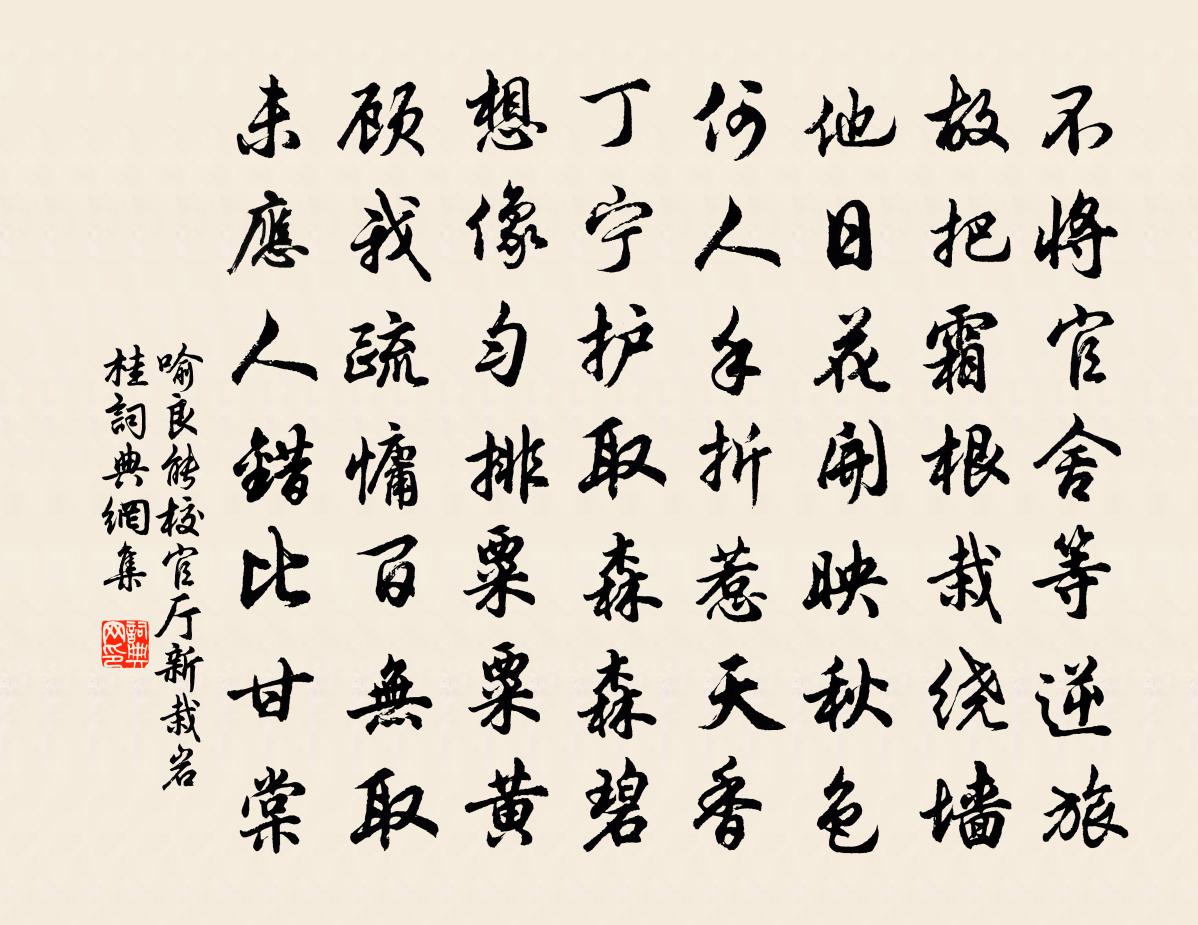 不将官舍等逆旅
故把霜根栽绕墙
他日花開映秋色
何人手折惹天香
丁宁护取森森碧
想像匀排粟粟黄
顾我疏慵百無取
未應人錯比甘棠
喻良能校官厅新栽岩
桂詞典網集
詞典
网印